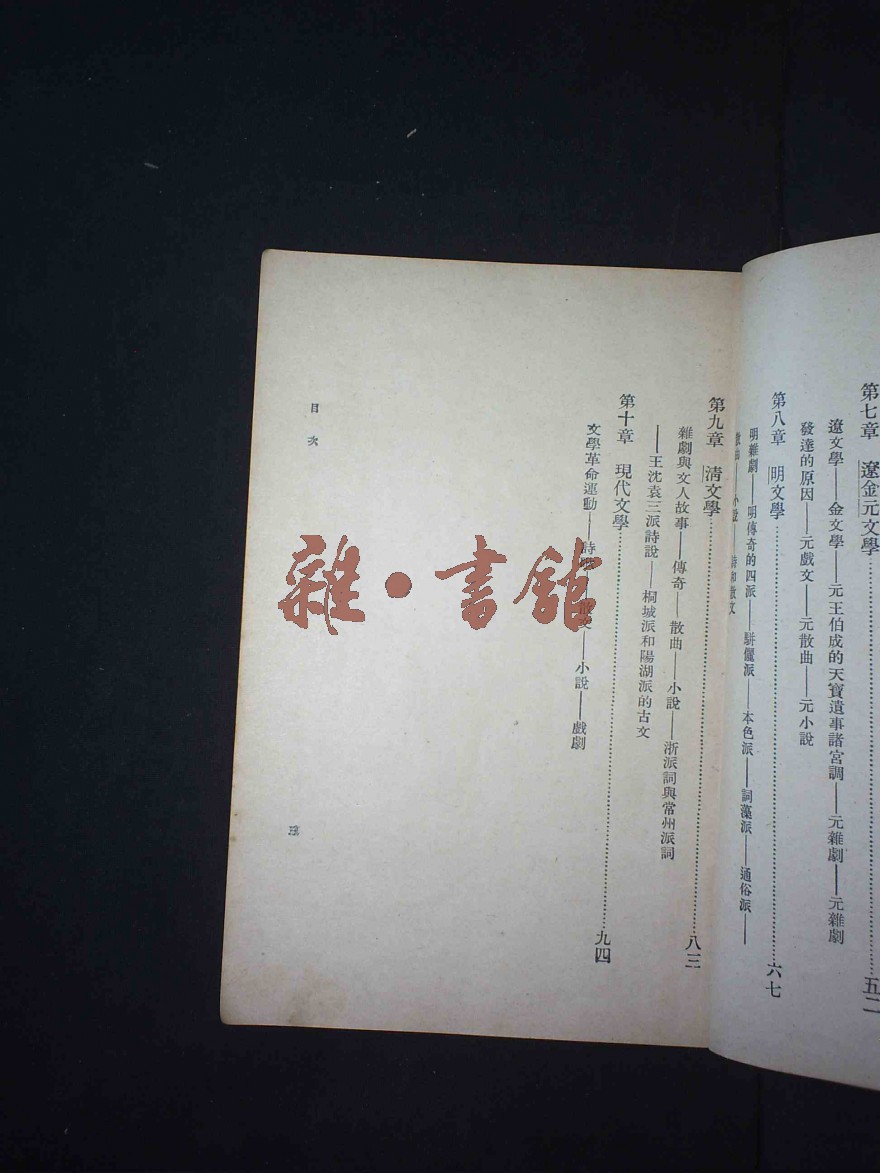 第七章　遼金元文學……五二
遼文學——金文學——元王伯成的天寶遺事諸宮調——元雜劇——元雜劇
發達的原因——元戲文——元散曲——元小說
第八章　明文學……六七
明雜劇——明傳奇的四派——駢儷派——本色派——詞藻派——通俗派——
散曲——小說——詩和散文
第九章　清文學……八三
雜劇與文人故事——傳奇——散曲——小說——浙派詞與常州派詞
——王沈袁三派詩說——桐城派和陽湖派的古文
第十章　現代文學……九四
文學革命運動——詩歌——散文——小說——戲劇
目次
三
雜·書館